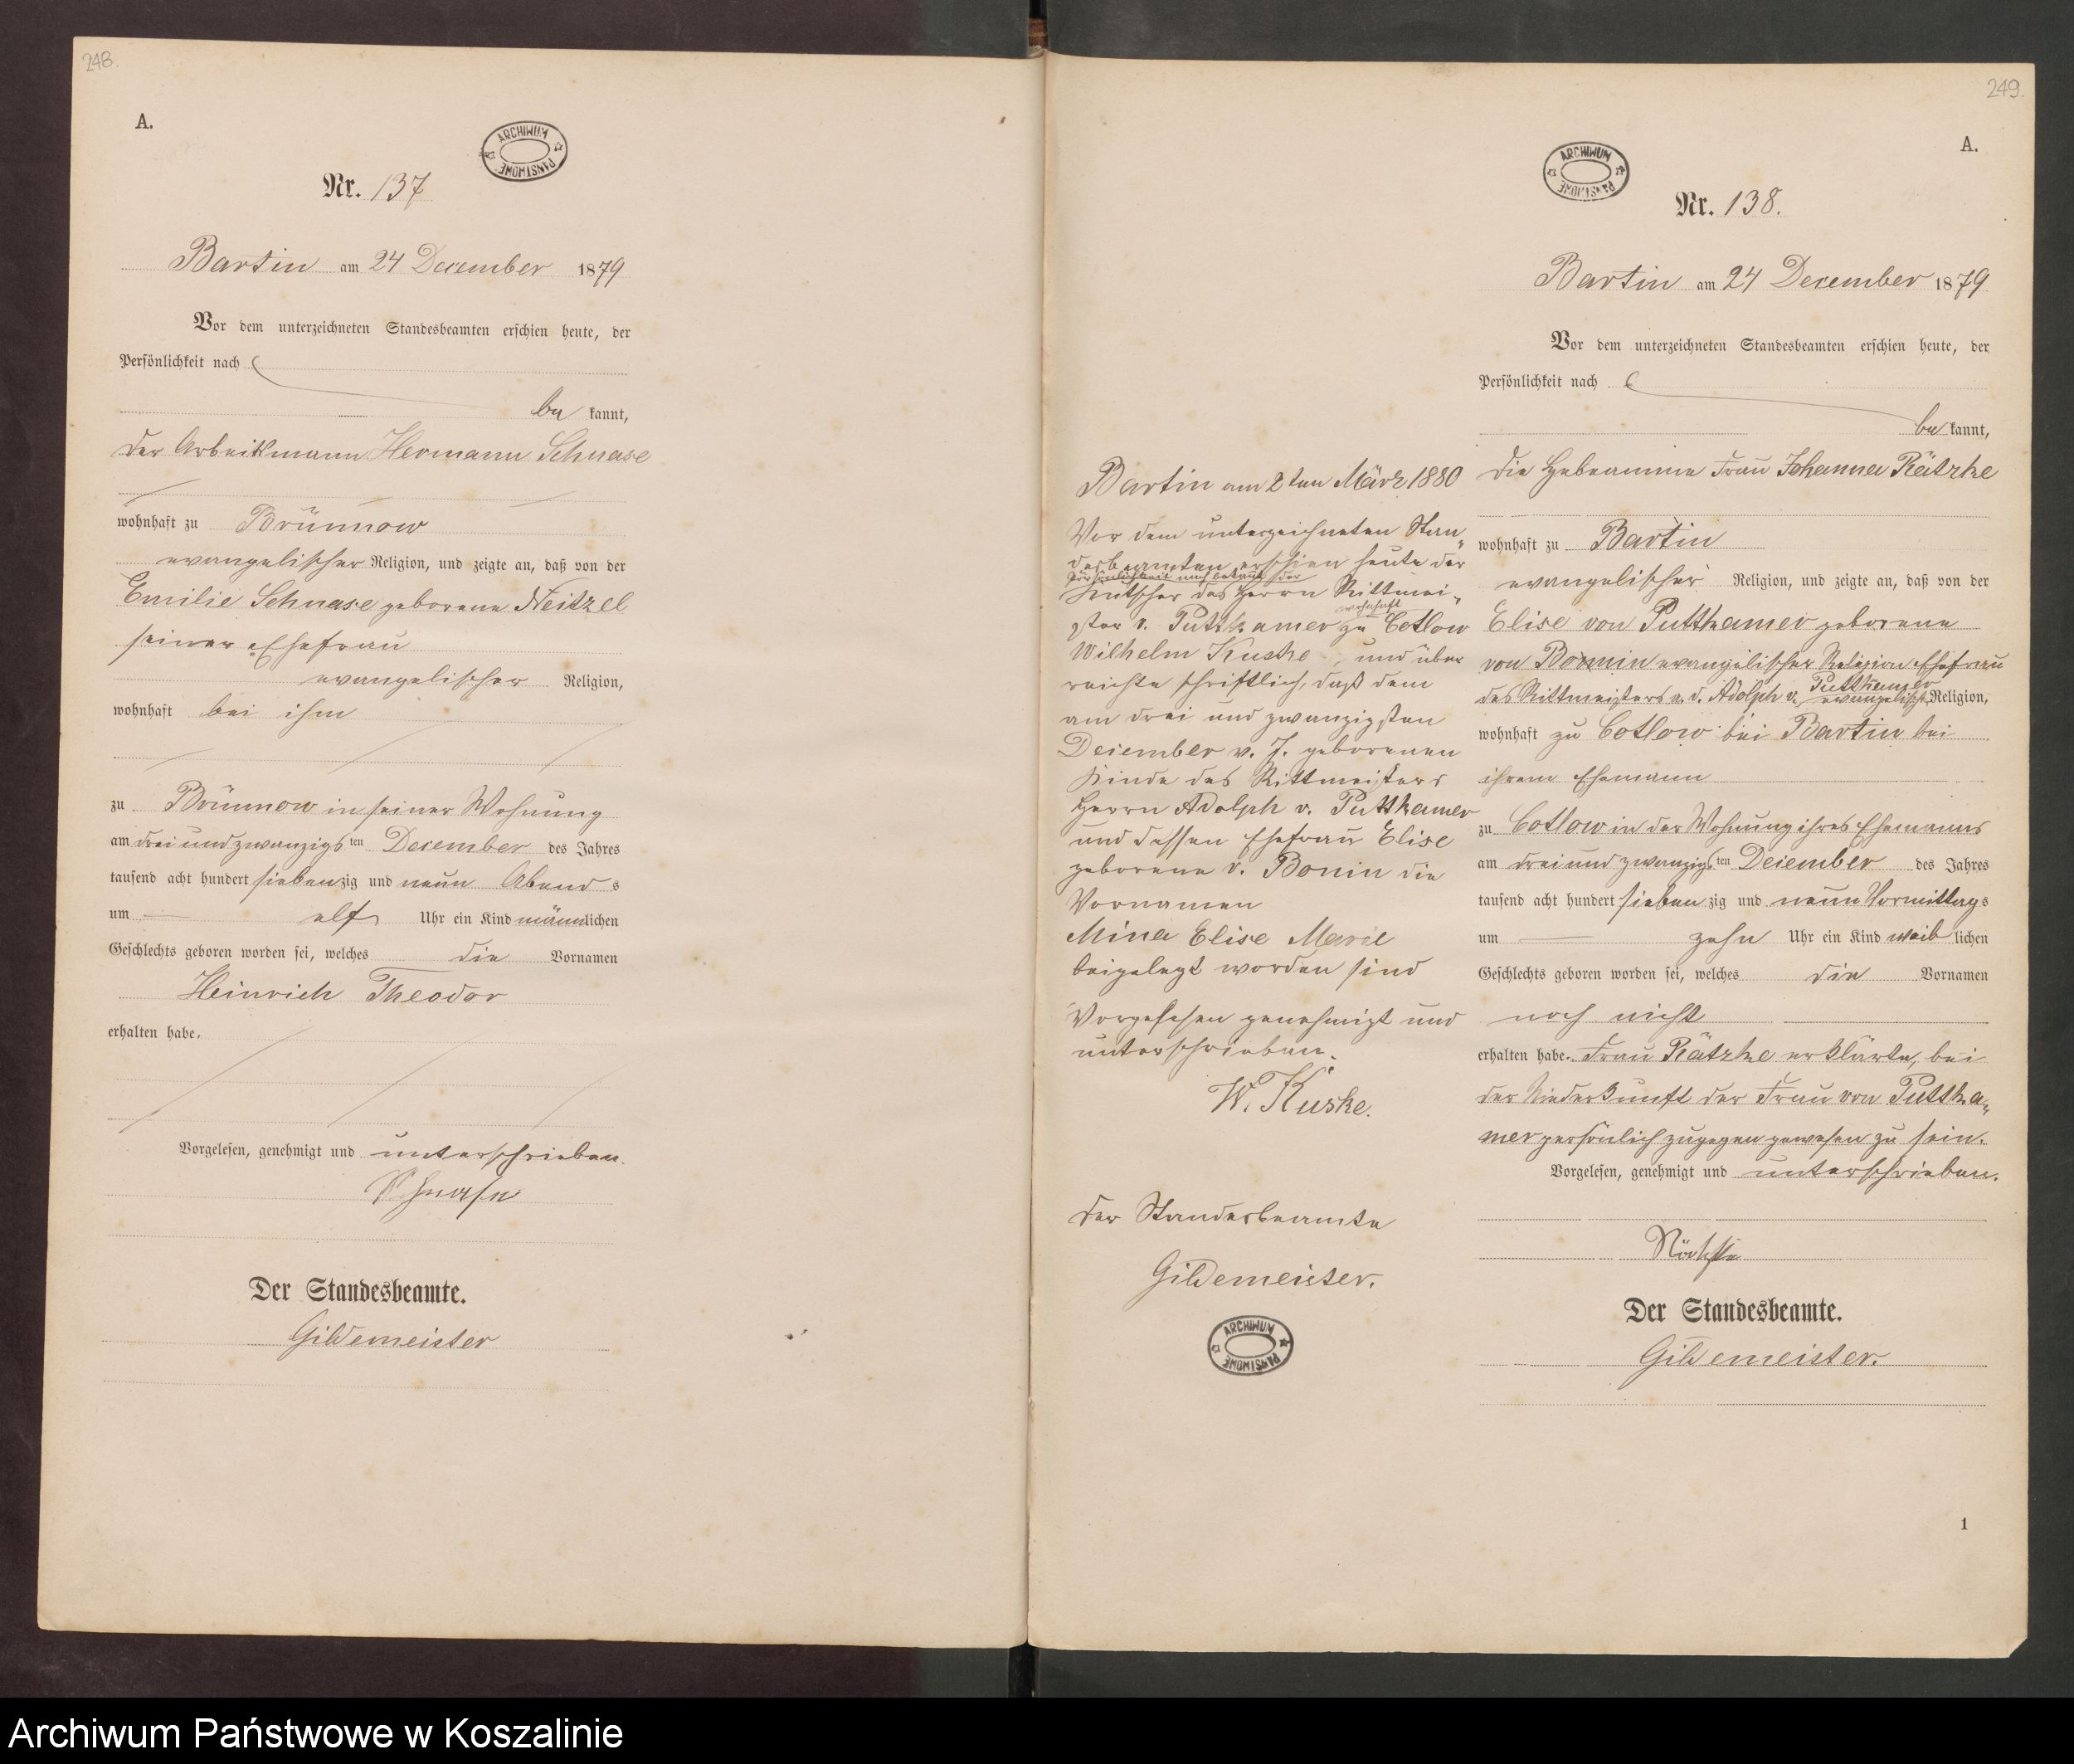 248.
A.
ARCHIWUM PAŃSTWOWE
Nr. 137
Bartin am 24 December 1879
Vor dem unterzeichneten Standesbeamten erschien heute, der
Persönlichkeit nach
be kannt,
der Arbeitsmann Hermann Schnase
wohnhaft zu Brünnow
evangelischer Religion, und zeigte an, daß von der
Emilie Schnase geborene Neitzel
seiner Ehefrau
evangelischer Religion,
wohnhaft bei ihm
zu Brünnow in seiner Wohnung
am drei und zwanzigs ten December des Jahres
tausend acht hundert siebenzig und neun Abend s
um elf Uhr ein Kind männlichen
Geschlechts geboren worden sei, welches die Vornamen
Heinrich Theodor
erhalten habe.
Vorgelesen, genehmigt und unterschrieben.
Schnase
Der Standesbeamte.
Gildemeister
249.
A.
ARCHIWUM PAŃSTWOWE
Nr. 138.
Bartin am 24 December 1879
Vor dem unterzeichneten Standesbeamten erschien heute, der
Persönlichkeit nach
be kannt,
die Hebeamme Frau Johanna Rätzke
wohnhaft zu Bartin
evangelischer Religion, und zeigte an, daß von der
Elise von Puttkamer geborene
von Bonnin evangelischer Religion Ehefrau
des Rittmeisters a. d. Adolph v. Puttkamer
evangelisch Religion,
wohnhaft zu Cotlow bei Bartin bei
ihrem Ehemann
zu Cotlow in der Wohnung ihres Ehemanns
am drei und zwanzigs ten December des Jahres
tausend acht hundert sieben zig und neun Vormittag s
um zehn Uhr ein Kind weib lichen
Geschlechts geboren worden sei, welches die Vornamen
noch nicht
erhalten habe. Frau Rätzke erklärte, bei
der Niederkunft der Frau von Puttka„
mer persönlich zugegen gewesen zu sein.
Vorgelesen, genehmigt und unterschrieben.
Der Standesbeamte.
Gildemeister.
1
Bartin am 2ten März 1880
Vor dem unterzeichneten Stan„
desbeamten erschien heute der
Persönlichkeit nach bekannt der
Kutscher des Herrn Rittmei„
wohnhaft
ster v. Puttkamer zu Cotlow
Wilhelm Kuske, und über
reichte schriftlich, daß dem
am drei und zwanzigsten
December v. J. geborenen
Kinde des Rittmeisters
Herrn Adolph v. Puttkamer
und dessen Ehefrau Elise
geborene v. Bonin die
Vornamen
Mina Elise Marie
beigelegt worden sind
Vorgelesen genehmigt und
unterschrieben.
W. Kuske.
Der Standesbeamte
Gildemeister.
ARCHIWUM PAŃSTWOWE
Archiwum Państwowe w Koszalinie